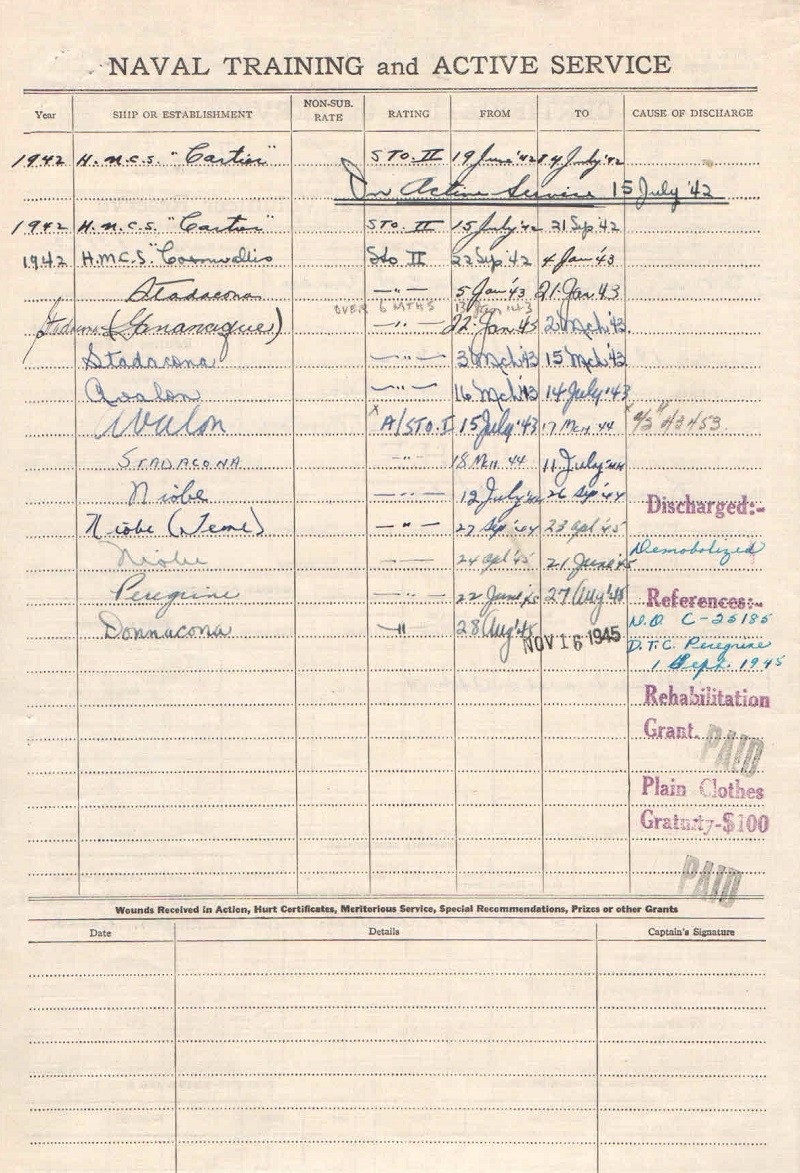 NAVAL TRAINING and ACTIVE SERVICE
Year SHIP OR ESTABLISHMENT NON-SUB. RATE RATING FROM TO CAUSE OF DISCHARGE
1942 H.M.C.S. "Cartier" STO. II 19 June '42 July '42
On Active Service 15 July '42
1942 H.M.C.S. "Cartier" STO. II 15 July '42 21 Sep '42
1942 H.M.C.S. "Cornwallis" Sto II 22 Sep '42 4 Jan '43
Stadacona —"— 5 Jan '43 21 Jan '43
OVER 6 MTHS
Stadacona (Gananoque) —"— 22 Jan 43 2 Mch '43
Stadacona —"— 3 Mch '43 15 Mch '43
Avalon —"— 16 Mch '43 14 July '43
Avalon x A/STO. I 15 July '43 17 Mch '44
STADACONA " 18 Mch 44 11 July '44
Niobe —"— 12 July '44 26 Sep '44
Discharged:-
Niobe (Teme) —"— 27 Sep '44 23 Apl '45
Demobolized
Niobe —"— 24 Apl '45 21 June '45
Peregrine —"— 22 June '45 27 Aug '45
References:-
Donnacona —"— 28 Aug '45 NOV 16 1945
N.D C-25185
D.T.C. Peregrine
1 Sept. 1945
Rehabilitation
Grant.
PAID
Plain Clothes
Gratuity-$100
PAID
Wounds Received in Action, Hurt Certificates, Meritorious Service, Special Recommendations, Prizes or other Grants
Date Details Captain's Signature